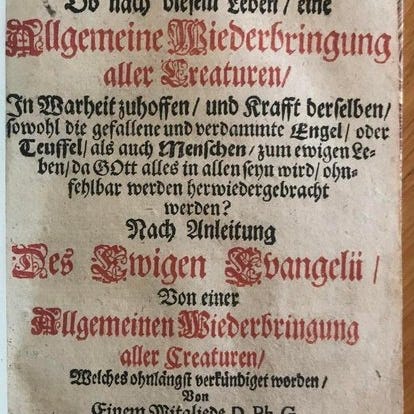 Ob nach diesem Leben / eine
Allgemeine Wiederbringung
aller Creaturen /
In Warheit zuhoffen / und Krafft derselben /
sowohl die gefallene und verdammte Engel / oder
Teuffel / als auch Menschen / zum ewigen Le-
ben / da GOtt alles in allen seyn wird / ohn-
fehlbar werden herwiedergebracht
werden?
Nach Anleitung
Des Ewigen Evangelii /
Von einer
Allgemeinen Wiederbringung
aller Creaturen /
Welches ohnlängst verkündiget worden /
Von
Einem Mitgliede D. Ph. G.